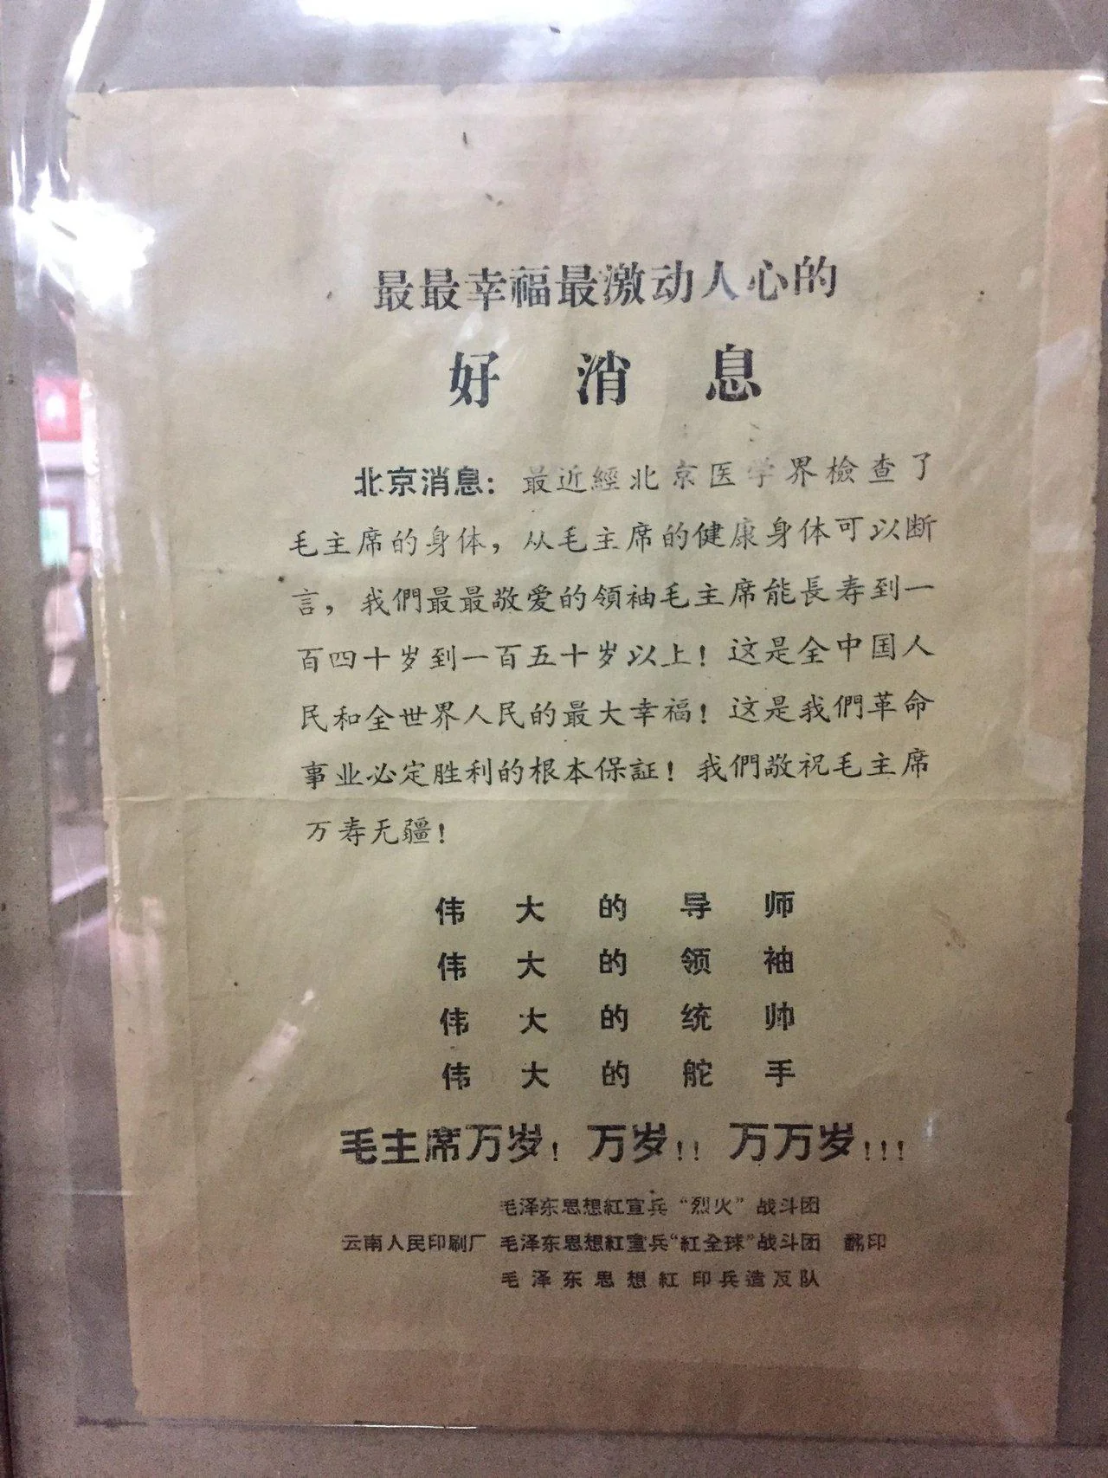 最最幸福最激动人心的
好消息
北京消息：最近經北京医学界檢查了
毛主席的身体，从毛主席的健康身体可以断
言，我們最最敬爱的領袖毛主席能長寿到一
百四十岁到一百五十岁以上！这是全中国人
民和全世界人民的最大幸福！这是我們革命
事业必定胜利的根本保証！我們敬祝毛主席
万寿无疆！
伟大的导师
伟大的领袖
伟大的统帅
伟大的舵手
毛主席万岁！万岁！！万万岁！！！
毛泽东思想紅宣兵“烈火”战斗团
云南人民印刷厂 毛泽东思想紅宣兵“紅全球”战斗团 翻印
毛泽东思想紅印兵造反队